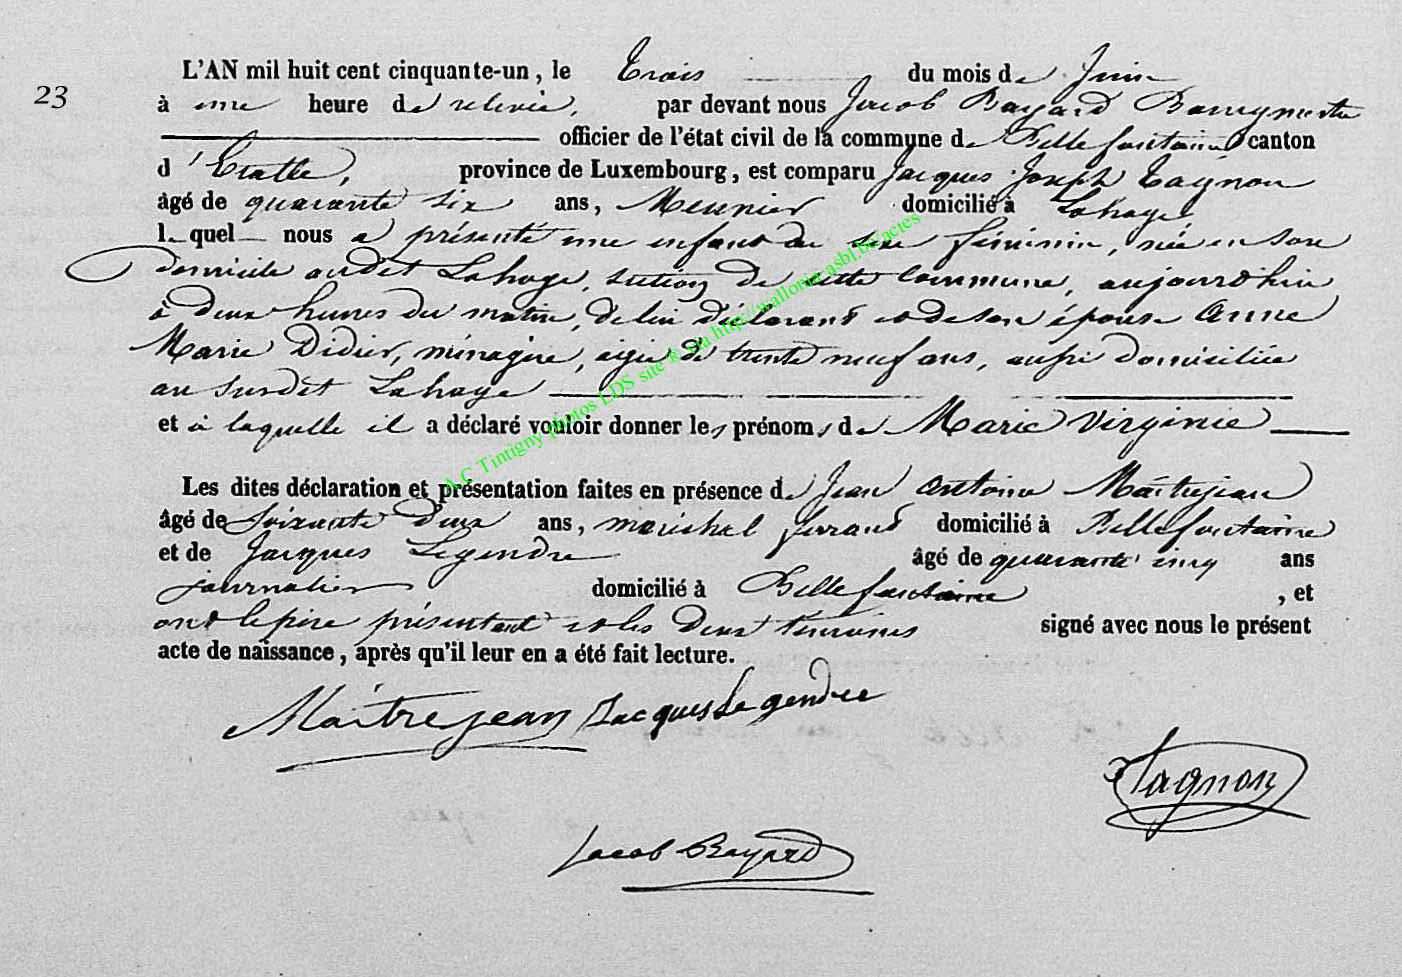 23
L'AN mil huit cent cinquante-un, le trois du mois de Juin
à une heure de relevée, par devant nous Jacob Bayard Bourgmestre
officier de l'état civil de la commune de Bellefontaine canton
d'Etalle, province de Luxembourg, est comparu Jacques Joseph Tagnon
âgé de quarante six ans, Meunier domicilié à Lahage
lequel nous a présenté une enfant du sexe féminin, née en son
domicile audit Lahage, section de cette commune, aujourd'hui
à deux heures du matin, de lui déclarant et de son épouse Anne
Marie Didier, ménagère, agée de trente neuf ans, aussi domiciliée
au susdit Lahage
et à laquelle il a déclaré vouloir donner les prénoms de Marie Virginie
Les dites déclaration et présentation faites en présence de Jean Antoine Maitrejean
âgé de soixante deux ans, maréchal ferrand domicilié à Bellefontaine
et de Jacques Legendre âgé de quarante cinq ans
journalier domicilié à Bellefontaine, et
ont le père présentant et les deux témoins signé avec nous le présent
acte de naissance, après qu'il leur en a été fait lecture.
Maitrejean Jacques Legendre
Tagnon
Jacob Bayard
A.C Tintigny photos LDS site ® via http://wallonia.asbl.be/actes